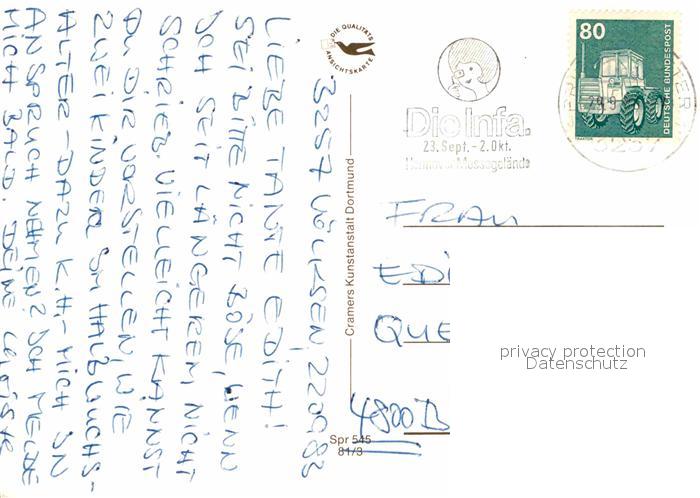 3257 VÖLKSEN, 220983
LIEBE TANTE EDITH!
SEI BITTE NICHT BÖSE, WENN
ICH SEIT LÄNGEREM NICHT
SCHRIEB. VIELLEICHT KANNST
DU DIR VORSTELLEN, WIE
ZWEI KINDER IM HALBWUCHS-
ALTER – DAZU K.H. – MICH IN
ANSPRUCH NEHMEN? ICH MELDE
MICH BALD. DEINE
DIE QUALITÄTS
ANSICHTSKARTE
Cramers Kunstanstalt Dortmund
Spr 545
81/3
Die Infa.
23. Sept. – 2. Okt.
Hannover Messegelände
80
DEUTSCHE BUNDESPOST
TRAKTOR
FRAU
EDI
QUE
4800 B
privacy protection
Datenschutz